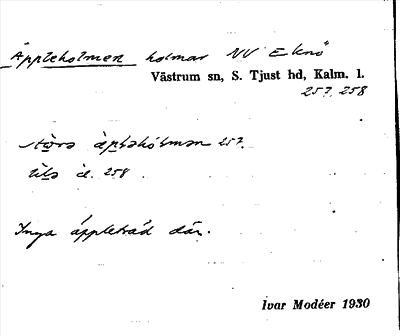 Äppleholmen holmar NV Eknö
Västrum sn, S. Tjust hd, Kalm. l.
257. 258
stora äpləhólmən 257.
lilə d. 258.
Inga äppleträd där.
Ivar Modéer 1930